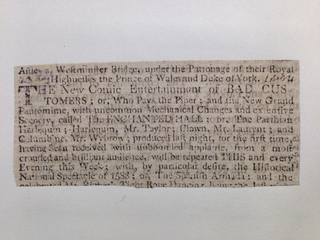 Astley's, Westminster Bridge, under the Patronage of their Royal
Highnesses the Prince of Wales and Duke of York.
THE New Comic Entertainment of BAD CUS-
TOMERS; or, Who Pays the Piper; and the New Grand
Pantomime, with uncommon Mechanical Changes and extensive
Scenery, called The ENCHANTED HALL; or the Parisian
Harlequin; Harlequin, Mr. Taylor; Clown, Mr. Laurent; and
Columbine, Mr. Wybrow; produced last night, for the first time,
having been received with unbounded applause, from a most
crouded and brilliant audience, will be repeated THIS and every
Evening this Week; with, by particular desire, the Historical
National Spectacle of 1588; or, The Spanish Armada; and the
celebrated Mr. Tight Rope